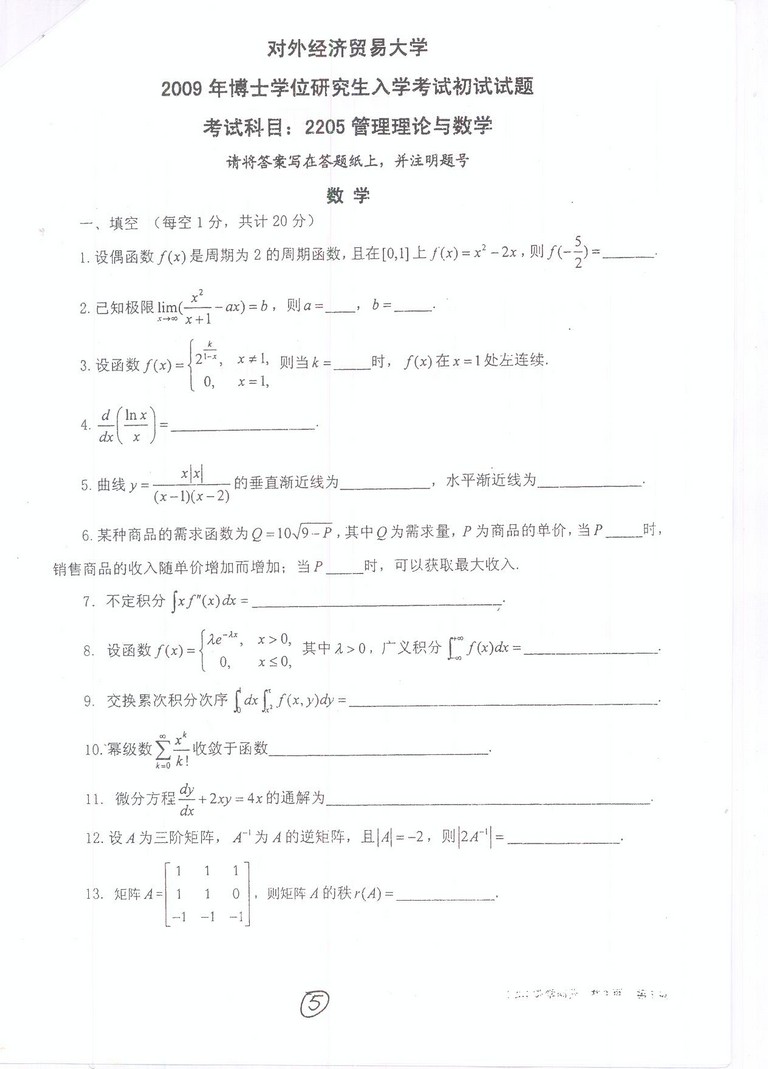 对外经济贸易大学
2009 年博士学位研究生入学考试初试试题
考试科目：2205 管理理论与数学
请将答案写在答题纸上，并注明题号
数 学
一、填空 （每空 1 分，共计 20 分）
1. 设偶函数 f(x) 是周期为 2 的周期函数，且在[0,1]上 f(x) = x² − 2x，则 f(−5/2) = ______.
2. 已知极限 lim_{x→∞}(x²/(x+1) − ax) = b，则 a = ____，b = _____.
3. 设函数 f(x) = { 2^{k/(1−x)}, x ≠ 1, 0, x = 1, 则当 k = _____时， f(x) 在 x = 1 处左连续.
4. d/dx (ln x / x) = ________________.
5. 曲线 y = x|x| / ((x−1)(x−2)) 的垂直渐近线为__________，水平渐近线为____________.
6. 某种商品的需求函数为 Q = 10√(9−P)，其中 Q 为需求量，P 为商品的单价，当 P _____时，
销售商品的收入随单价增加而增加；当 P _____时，可以获取最大收入.
7. 不定积分 ∫x f″(x) dx = ____________________________.
8. 设函数 f(x) = { λe^{−λx}, x > 0, 0, x ≤ 0, 其中 λ > 0，广义积分 ∫_{−∞}^{+∞} f(x)dx = _______________.
9. 交换累次积分次序 ∫_0^1 dx ∫_{x²}^x f(x, y)dy = ___________________________________.
10. 幂级数 ∑_{k=0}^∞ x^k/k! 收敛于函数_________________________.
11. 微分方程 dy/dx + 2xy = 4x 的通解为____________________________________.
12. 设 A 为三阶矩阵， A⁻¹ 为 A 的逆矩阵，且|A| = −2，则|2A⁻¹| = _____________.
13. 矩阵 A = [1 1 1; 1 1 0; −1 −1 −1]，则矩阵 A 的秩 r(A) = ___________.
5